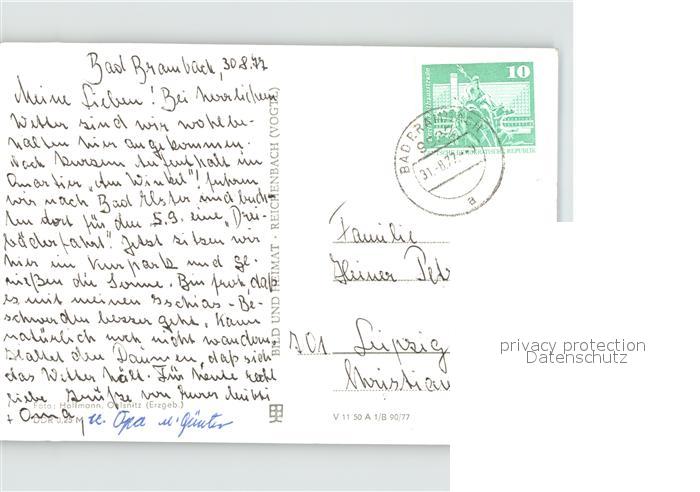 Bad Brambach, 30.8.77
Meine Lieben! Bei herrlichem
Wetter sind wir wohlbe-
halten hier angekommen.
Nach kurzem Aufenthalt im
Quartier "Am Winkel"! fuhren
wir nach Bad Elster und buch-
ten dort für den 5.9. eine "Drei-
bäderfahrt". Jetzt sitzen wir
hier im Kurpark und ge-
nießen die Sonne. Bin froh, daß
es mit meinen Ischias-Be-
schwerden besser geht, kann
natürlich noch nicht wandern.
Haltet den Daumen, daß sich
das Wetter hält. Für heute recht
liebe Grüße von Eurer Mutti
+ Oma, u. Opa u. Günter
Foto: Hoffmann, Oelsnitz (Erzgeb.)
DDR 0,25 M
BILD UND HEIMAT · REICHENBACH (VOGTL)
10
DEUTSCHE DEMOKRATISCHE REPUBLIK
BAD BRAMBACH
31.-8.77
a
Familie
Heiner Pet
701 Leipzig
Christian
V 11 50 A 1/B 90/77
privacy protection
Datenschutz